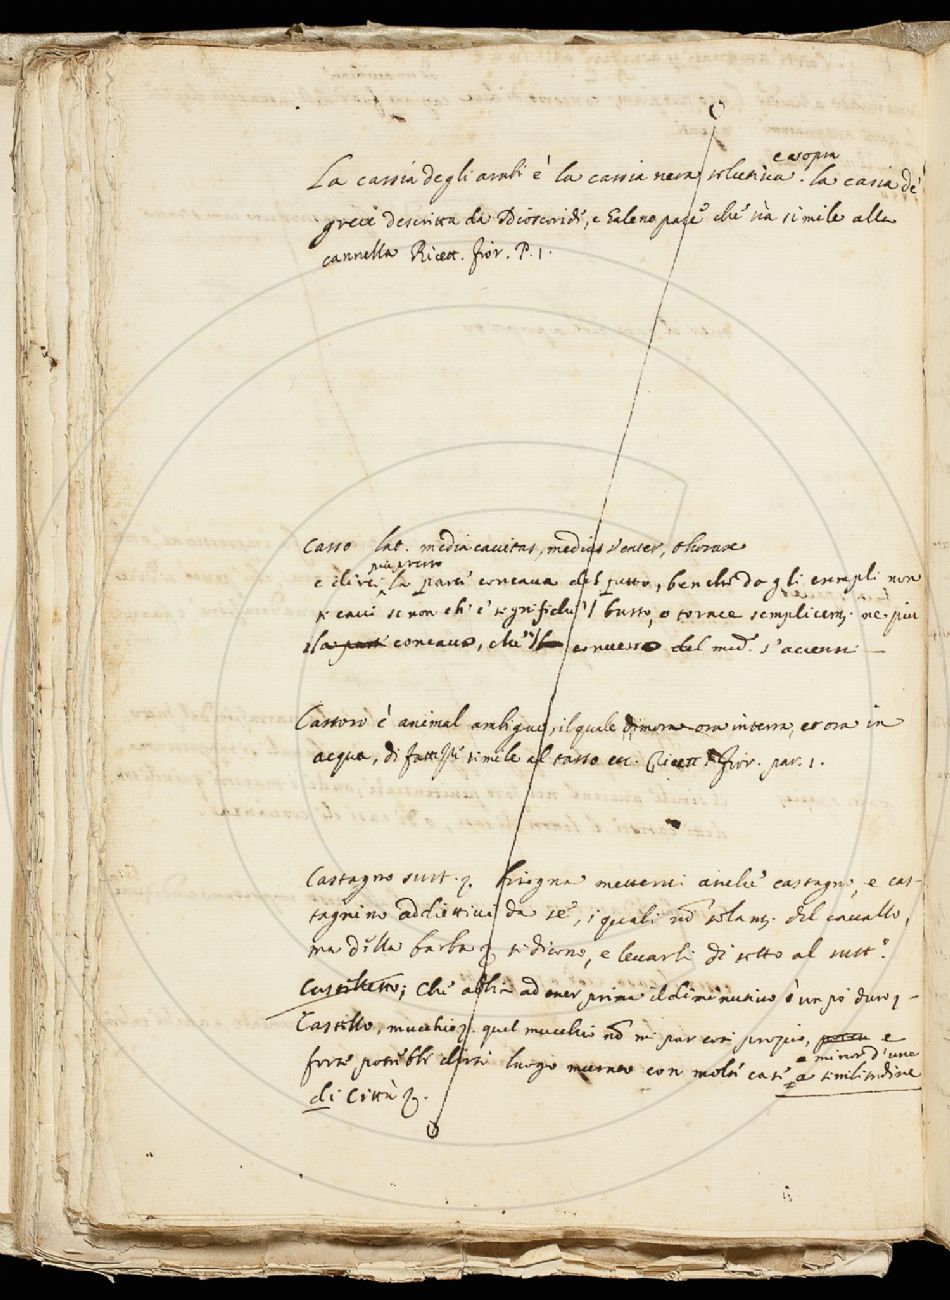 e sopra
La cassia degli arabi è la cassia nera solutiva. la casia de'
greci descritta da Dioscoride, e Galeno pare che sia simile alla
cannella Ricett. fior. P. 1.
Casso lat. media cavitas, medius venter, thorax
più presso
e direi la parte concava del petto, benche dagli esempli non
si cavi se non ch'e' significhi 'l busto, o torace semplicem. ne più
la parte concava, che 'l convesso del med. s'accenni
Castoro è animal ambiguo, il quale dimora ora in terra, et ora in
acqua, di fattezze simile al tasso etc. Ricett. Fior. par. 1.
Castagno sust. bisogna mettervi anche castagno, e cas-
tagnino addiettivi da se, i quali nõ solam. del cavallo,
ma della barba si dicono, e levarli di sotto al sust.º
Castelletto; che abbia ad esser prima il diminutivo è un po' duro
Castello, mucchio. quel mucchio nõ mi par così proprio, e
forse potrebbe dirsi luogo murato con molte case a similitudine
e minor d'una
di Città